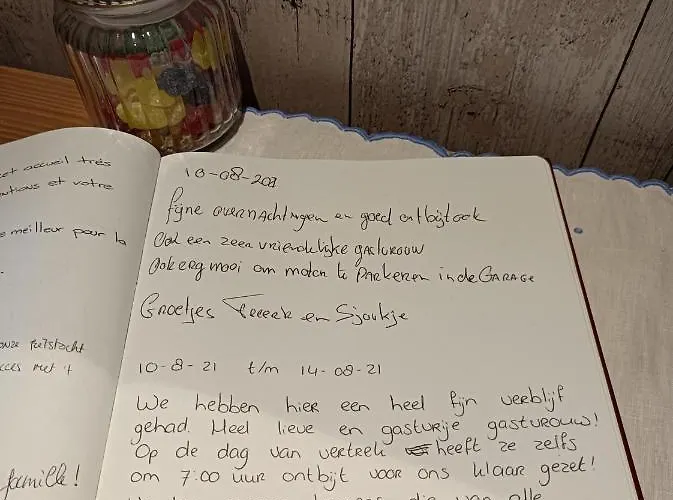 et accueil très
utions et votre
meilleur pour la
onze fietstocht
cces met 't
famille!
10-08-202
Fijne overnachtingen en goed ontbijt ook
Ook een zeer vriendelijke gastvrouw
Ook erg mooi om moten te Parkeren in de GARAGE
Groetjes en Sjoukje
10-8-21 t/m 14-08-21
We hebben hier een heel fijn verblijf
gehad. Heel lieve en gastvrije gastvrouw!
Op de dag van vertrek heeft ze zelfs
om 7:00 uur ontbijt voor ons klaar gezet!
die van alle